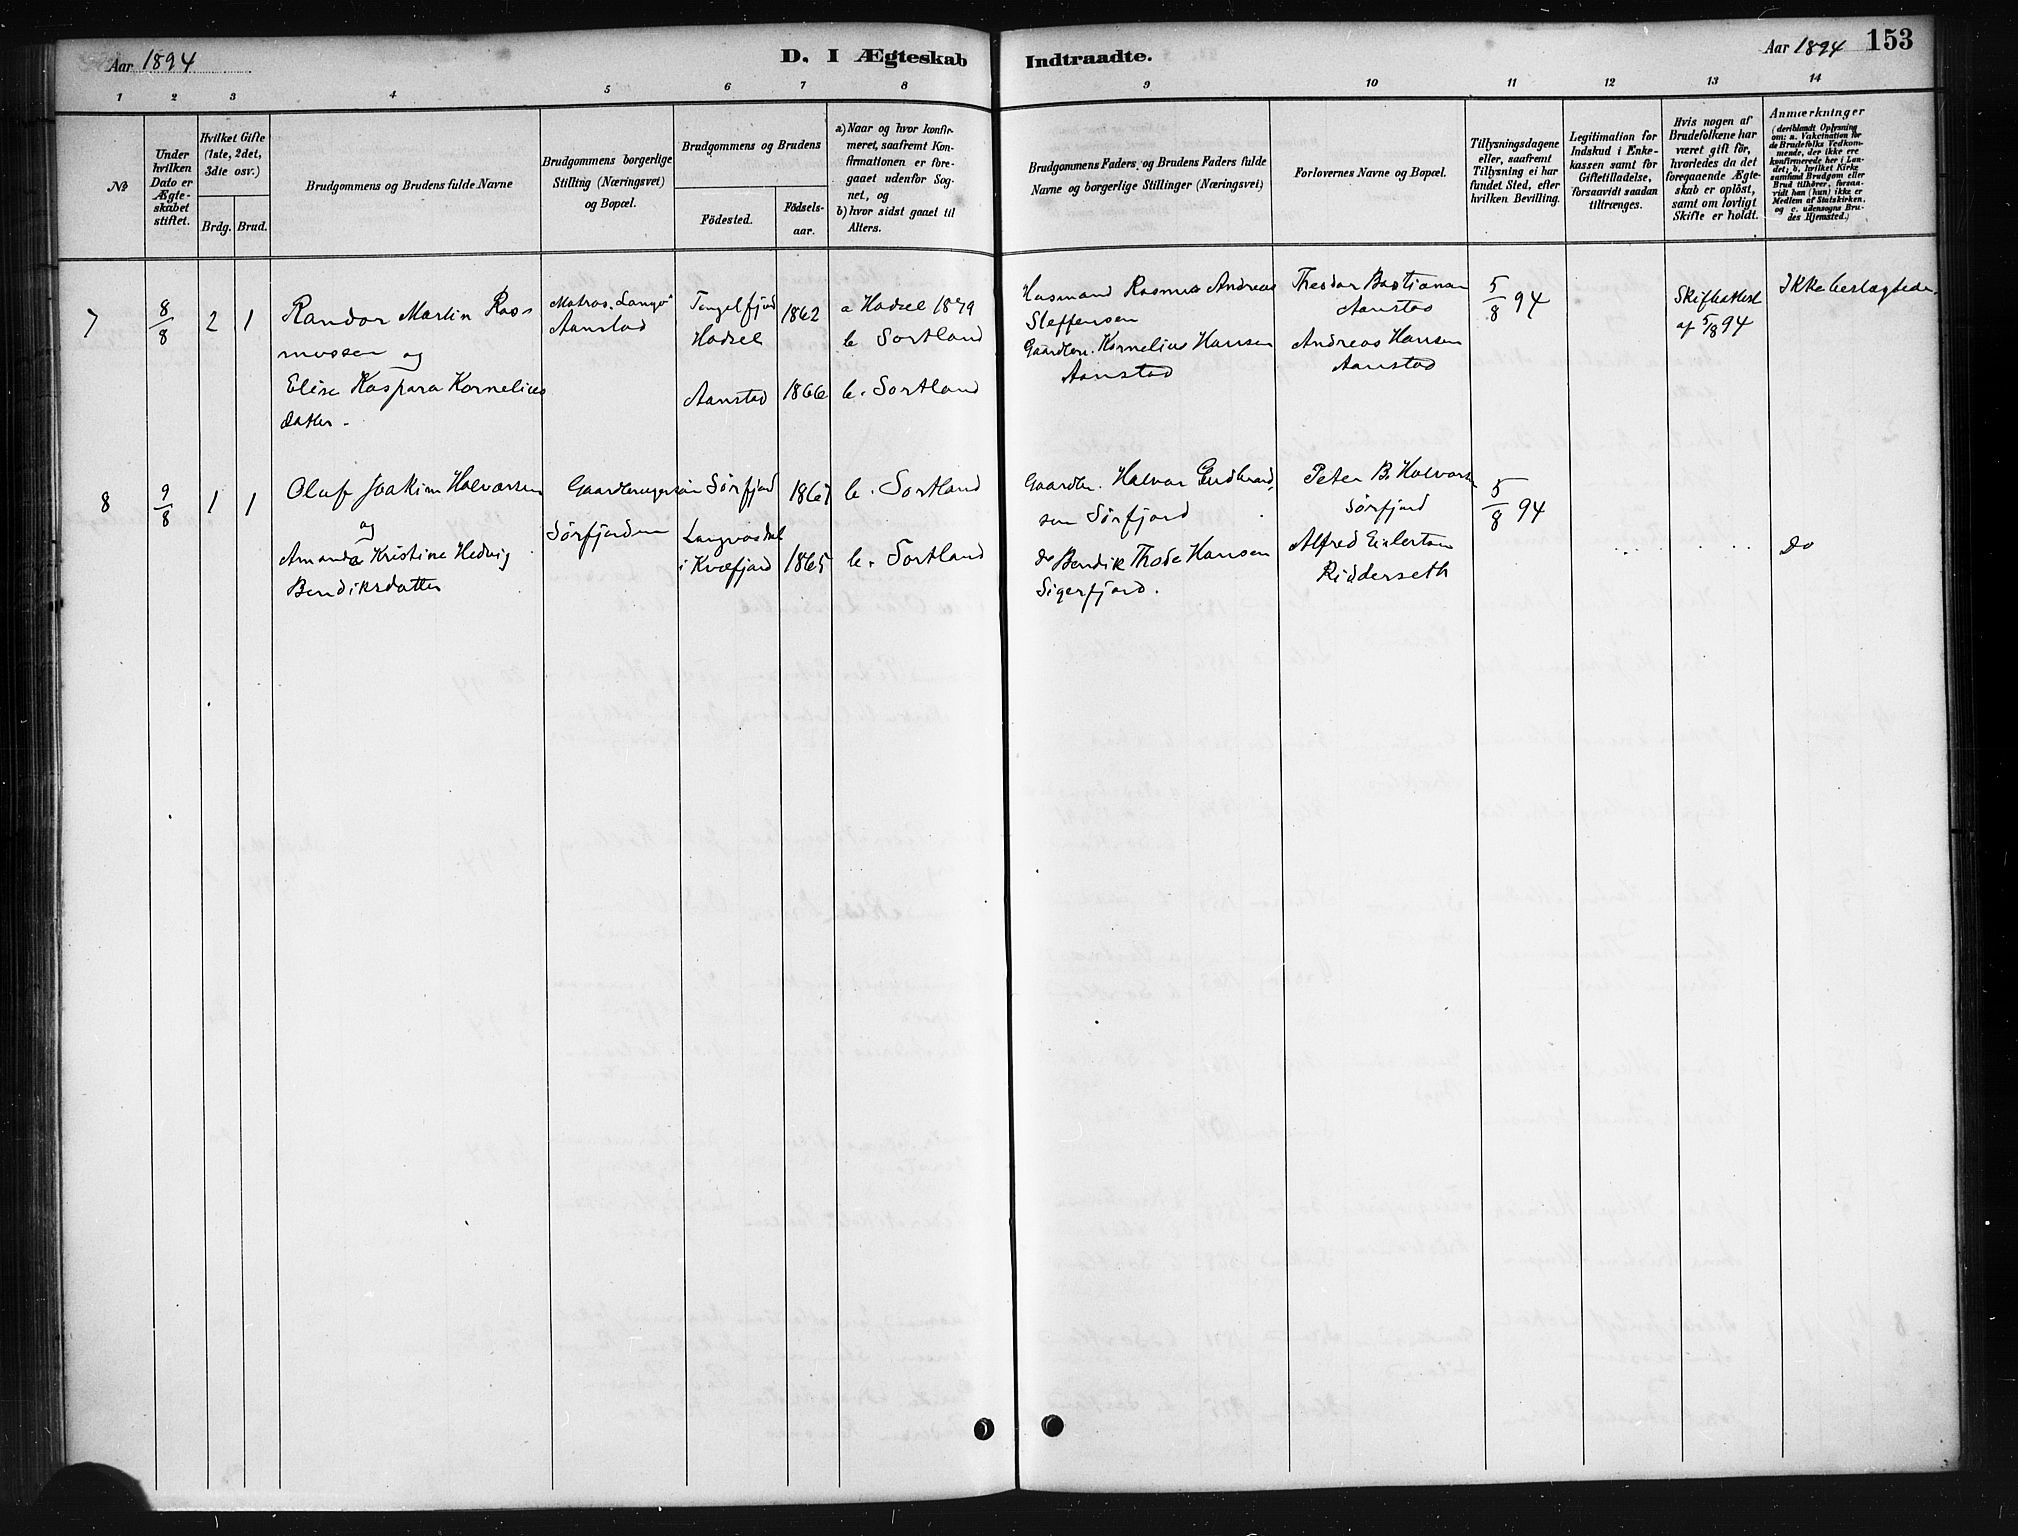 Aar 1894
D. I Ægteskab
Indtraadte.
Aar 1894 153
1 2 3 4 5 6 7 8 9 10 11 12 13 14
No
Under
hvilken
Dato er
Ægte-
skabet
stiftet.
Hvilket Gifte
(1ste, 2det,
3die osv.)
Brdg. Brud.
Brudgommens og Brudens fulde Navne
Brudgommens borgerlige
Stilling (Næringsvei)
og Bopæl.
Brudgommens og Brudens
Födested.
Födsels-
aar.
a) Naar og hvor konfir-
meret, saafremt Kon-
firmationen er fore-
gaaet udenfor Sog-
net, og
b) hvor sidst gaaet til
Alters.
Brudgommens Faders og Brudens Faders fulde
Navne og borgerlige Stillinger (Næringsvei)
Forlovernes Navne og Bopæl.
Tillysningsdagene
eller, saafremt
Tillysning ei har
fundet Sted, efter
hvilken Bevilling.
Legitimation for
Indskud i Enke-
kassen samt for
Giftetilladelse,
forsaavidt saadan
tiltrænges.
Hvis nogen af
Brudefolkene har
været gift för,
hvorledes da det
foregaaende Ægte-
skab er oplöst,
samt om lovligt
Skifte er holdt.
Anmærkninger
(deriblandt Oplysning
om: a. Vaccination for
de Brudefolks Vedkom-
mende, der ikke ere
konfirmerede her i Lan-
det; b. hvilket Kirke
samfund Brudgom eller
Brud tilhörer, forsaa-
vidt han (hun) ikke er
Medlem af Statskirken,
og c. udensogns Bru-
des Hjemsted.)
7
8/8
2 1
Randor Martin Ras-
mussen og
Elise Kaspara Kornelius
datter.
Matros. Langø
Aanstad
Tengelfjord
Hadsel
Aanstad
1862
1866
a Hadsel 1879
b Sortland
b. Sortland
Husmand Rasmus Andreas
Steffensen
Gaardbr. Kornelius Hansen
Aanstad
Theodor Bastiansen
Aanstad
Andreas Hansen
Aanstad
5/8 94
Skifteattest
af 5/8 94
Ikke beslægtede.
8
9/8
1 1
Oluf Joakim Halvorsen
og
Amanda Kristine Hedvig
Bendiksdatter
Gaardbrugersøn
Sørfjorden
Sørfjord
Langvasdal
i Kvæfjord
1867
1865
b. Sortland
b. Sortland
Gaardbr. Halvor Gudbrand
sen Sørfjord
do Bendik Thode Hansen
Sigerfjord.
Peter B. Halvorsen
Sørfjord
Alfred Eilertsen
Ridderseth
5/8 94
Do